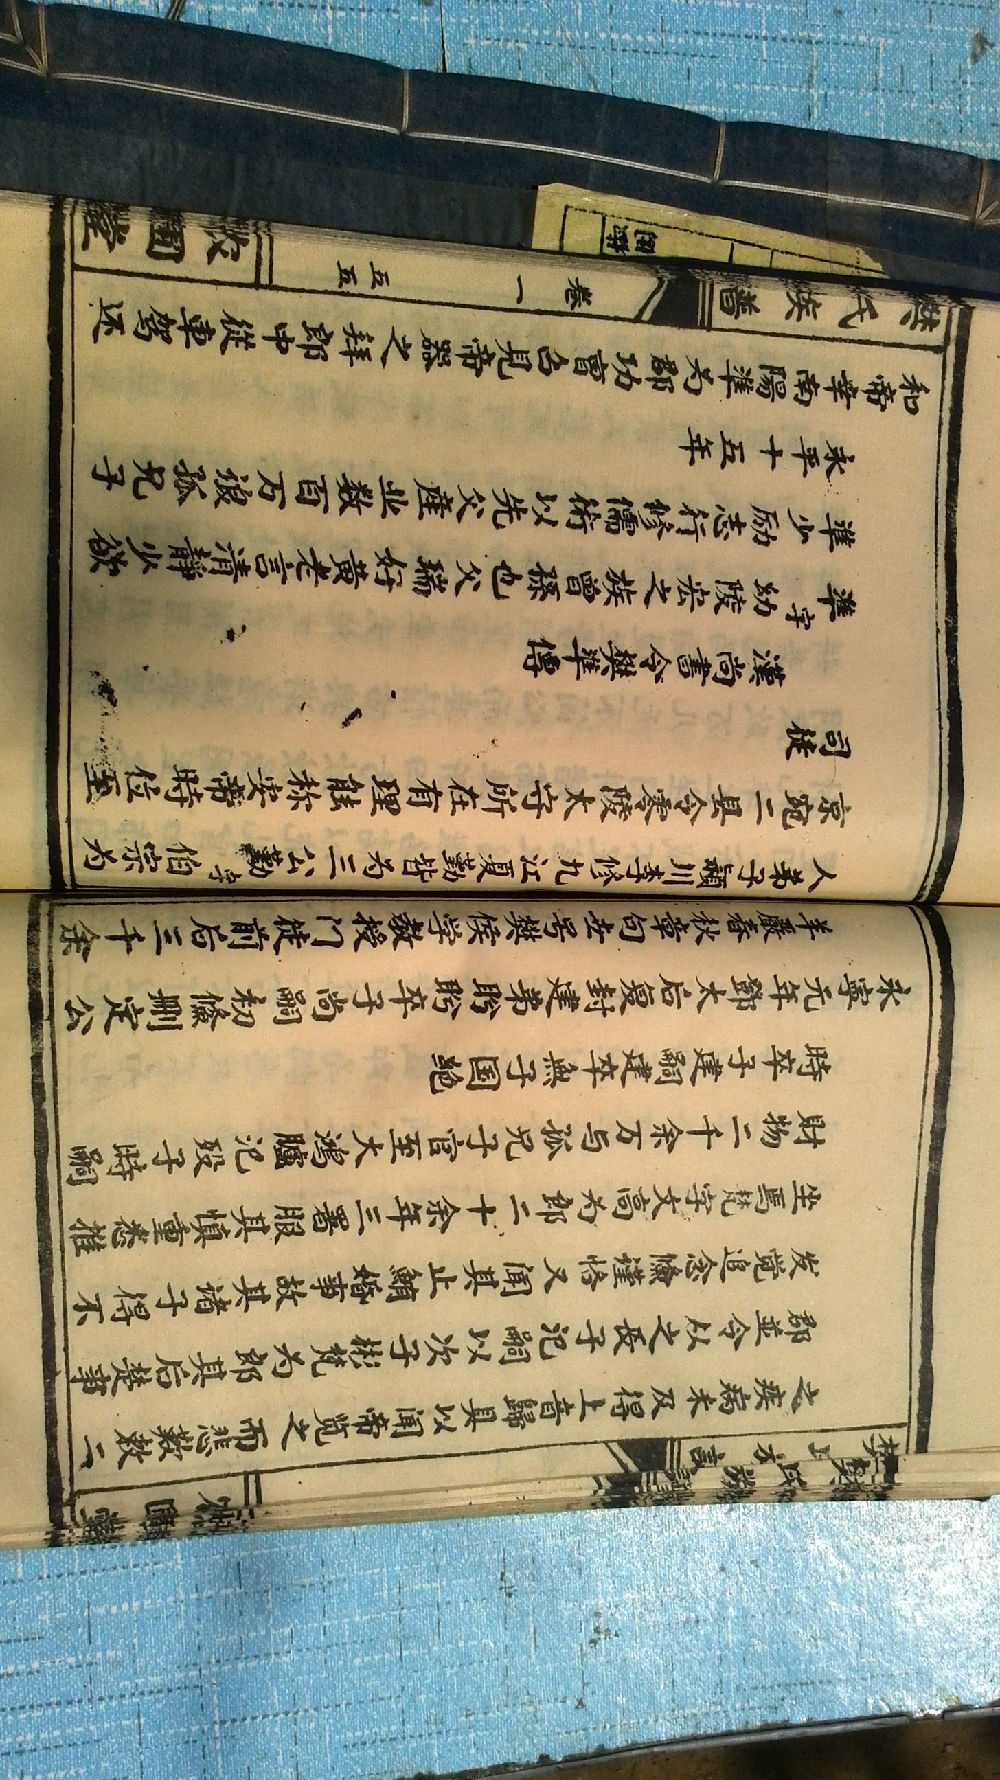 之疾病未及得上音歸具以闻帝览之而悲歎敕二
郡並令以之長子汜嗣以次子彬梵为郎其后楚事
发觉追念儵謹恪又闻其止鮪婚事故其诸子得不
坐焉梵字文高为郎二十余年三署服其慎重悉推
財物二千余万与孤兄子官至大鸿臚汜殁子時嗣
時卒子建嗣建卒無子国绝
永寧元年鄧太后复封建弟盼盼卒子尚嗣初儵刪定公
羊嚴春秋章句世号樊侯学教授门徒前后三千余
人弟子潁川李修九江夏勤皆为三公勤字伯宗为
京宛二县令零陵太守所在有理能称安帝時位至
司徒
漢尚書令樊準傳
準字幼陵宏之族曾孫也父瑞好黄老言清靜少欲
準少励志行修儒術以先父産业数百万让孤兄子
永平十五年
和帝幸南陽準为郡功曹召見帝器之拜郎中從車驾还
樊氏族譜 卷一 五五 國堂